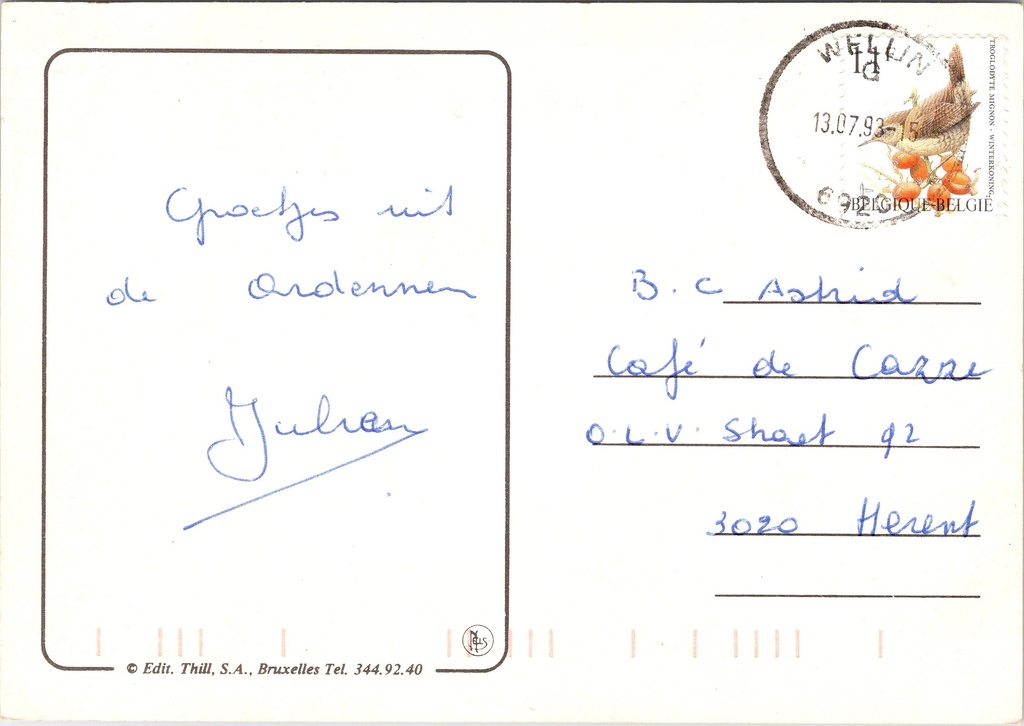 Groetjes uit
de Ardennen
Julien
© Edit. Thill, S.A., Bruxelles Tel. 344.92.40
NELS
WELLIN
G
13.07.93-15
6920
TROGLODYTE MIGNON - WINTERKONING
BELGIQUE-BELGIË
B.C Astrid
Café de Cazze
O.L.V. Straet 92
3020 Herent